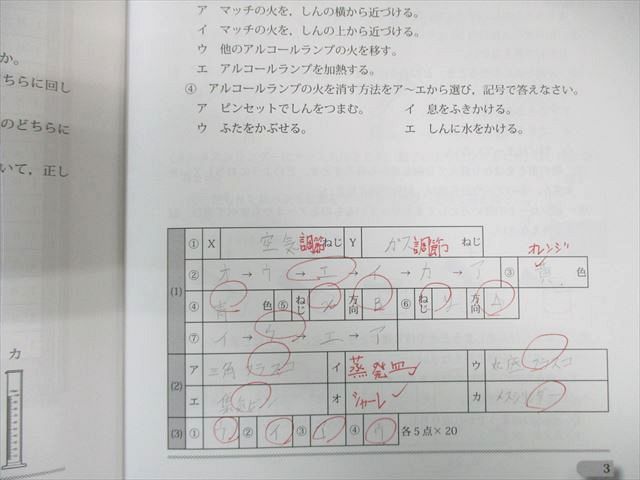 ア マッチの火を，しんの横から近づける。
イ マッチの火を，しんの上から近づける。
ウ 他のアルコールランプの火を移す。
エ アルコールランプを加熱する。
④ アルコールランプの火を消す方法をア〜エから選び，記号で答えなさい。
ア ピンセットでしんをつまむ。 イ 息をふきかける。
ウ ふたをかぶせる。 エ しんに水をかける。
か。
ちらに回し
のどちらに
いて，正し
カ
(1) ① X 空気調節ねじ Y ガス調節ねじ
オレンジ
② オ→ウ→エ→イ→カ→ア ③ 色
④ 青色 ⑤ ねじ 方向 B ⑥ ねじ 方向 A
⑦ イ→ウ→エ→ア
(2) ア 三角フラスコ イ 蒸発皿 ウ 丸底フラスコ
エ 集気ビン オ シャーレ カ メスシリンダー
(3) ① ② イ ③ ④ ウ 各5点×20
3